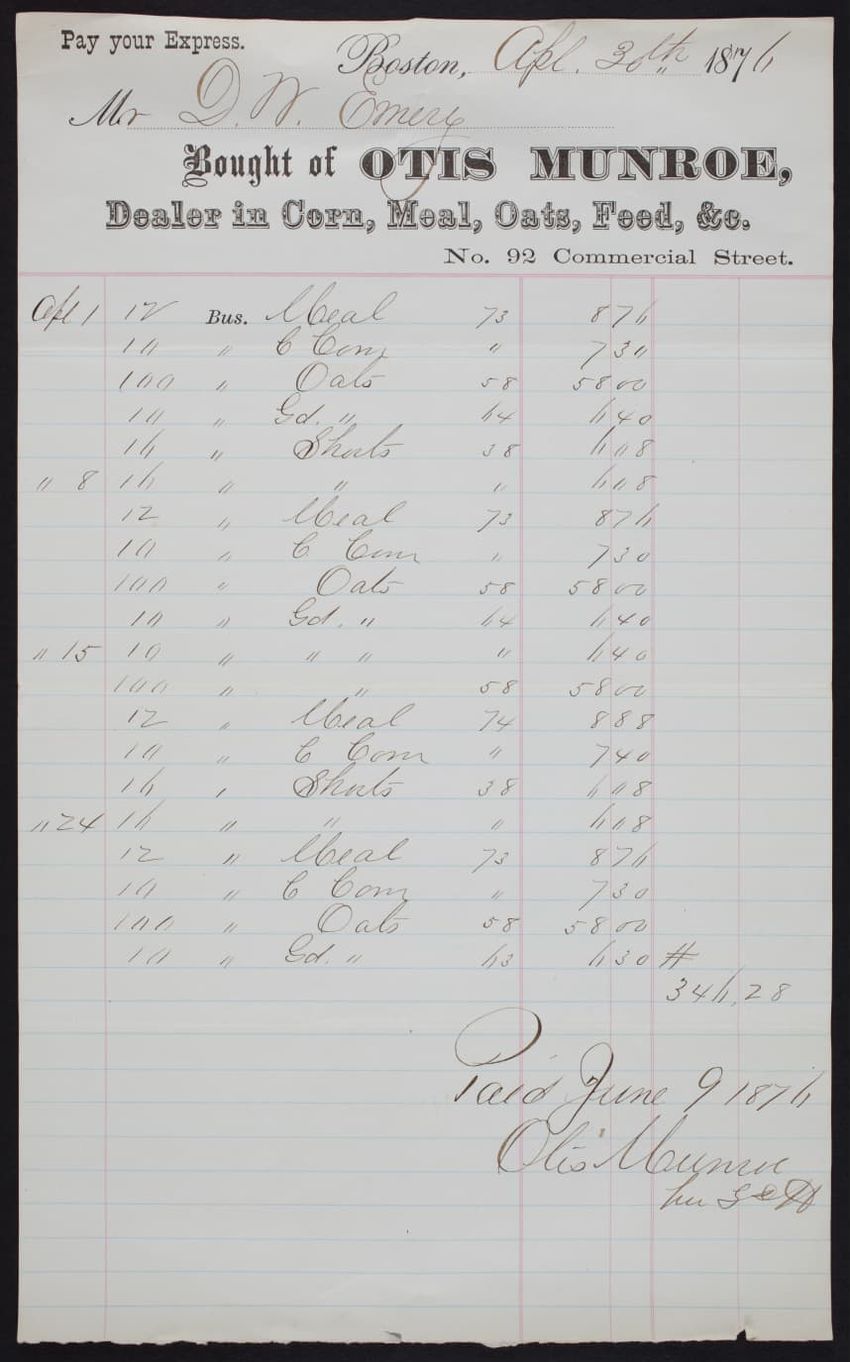 Pay your Express.
Boston, Apl. 30th 1876
Mr D. W. Emery
Bought of OTIS MUNROE,
Dealer in Corn, Meal, Oats, Feed, &c.
No. 92 Commercial Street.
Apl 1 12 Bus. Meal 73 8 76
10 " C Corn " 7 30
100 " Oats 58 58 00
10 " Gd. " 64 6 40
16 " Shorts 38 6 08
" 8 16 " " " 6 08
12 " Meal 73 8 76
10 " C Corn " 7 30
100 " Oats 58 58 00
10 " Gd. " 64 6 40
" 15 10 " " " " 6 40
100 " " 58 58 00
12 " Meal 74 8 88
10 " C Corn " 7 40
16 " Shorts 38 6 08
" 24 16 " " " 6 08
12 " Meal 73 8 76
10 " C Corn " 7 30
100 " Oats 58 58 00
10 " Gd. " 63 6 30 #
346.28
Paid June 9 1876
Otis Munroe